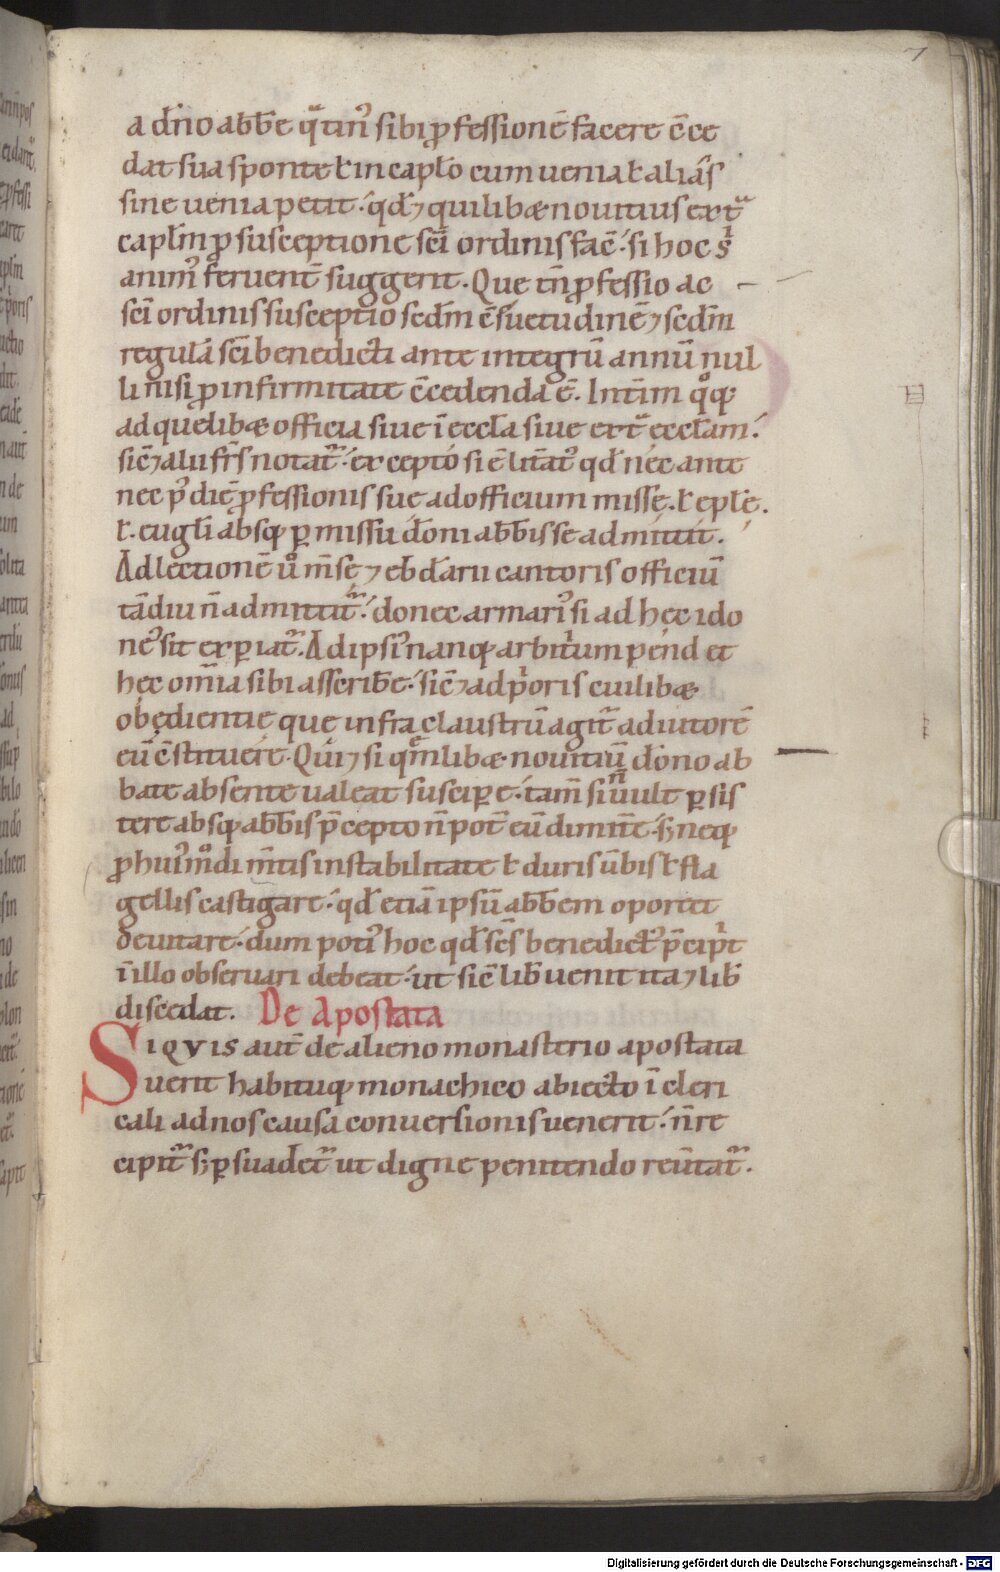 7
a dn̄o abb̄e qᵃtin᾽ sibi ꝓfessionē facere c̄ce
dat sua sponte ł in capl̄o cum uenia ł aliās
sine uenia petit. qđ ⁊ quilibæ nouitius extᵃ
capl̄m ꝓ susceptione sc̄i ordinis fac̄. si hoc s
anim᾽ feruent̄ suggerit. Que tn̄ ꝓfessio ac
sc̄i ordinis susceptio scd̄m c̄suetudinē ⁊ scd̄m
regulā sc̄i benedicti ante integrū annū nul
li nisi ꝓ infirmitate c̄cedenda ē. Int̄im qͦqꝫ
ad quelibæ officia siue ī eccl̄a siue extᵃ ecclam.
sic̄ ⁊ alii fr̄s notat᷑. excepto si ē litāt᾽ qđ nec ante
nec p᾽ diē ꝓfessionis sue ad officium missę. ł epl̄ę.
ł. eugl̄i absqꝫ ꝑmissu dōni abb̄is se admittit.
Ad lectionē uͦ m̄se ⁊ ebd̄arii cantoris officiū
tādiu n̄ admittit᷑. donec armari᾽ si ad hęc ido
ne᾽ sit exꝑiat᷑. Ad ipsi᾽ nanqꝫ arbitⁱum pend et
hęc om̄ia sibi asscribe. sic̄ ⁊ ad pⁱoris cuilibæ
obędientię que infra claustrū agit᷑ adiutorē
eū c̄stituere. Qui ⁊ si qͤm̄libæ nouitiū dōno ab
bate absente ualeat susciꝑe. tam̄ si n̄ uult ꝑsis
tere absqꝫ abb̄is p̄cepto n̄ pot̄ eū dimitt̄e. sꝫ neqꝫ
ꝓ hui᾽mͦdi m̄tis instabilitate ł duris ūbis ł fla
gellis castigare. qđ etiā ipsū abb̄em oportet
deuitare. dum poti᾽ hoc qđ sc̄s benedict᾽ p̄cipⁱt
ī illo obseruari debeat. ut sic̄ lib̄ uenit ita ⁊ lib̄
discedat. De Apostata
SIQVIS aut̄ de alieno monasterio apostata
uerit habituqꝫ monachico abiecto ī cleri
cali ad nos causa conuersionis uenerit. n̄ re
cipit᷑ sꝫ ꝑsuadet᷑ ut digne penitendo reūtat᷑.
Digitalisierung gefördert durch die Deutsche Forschungsgemeinschaft - DFG